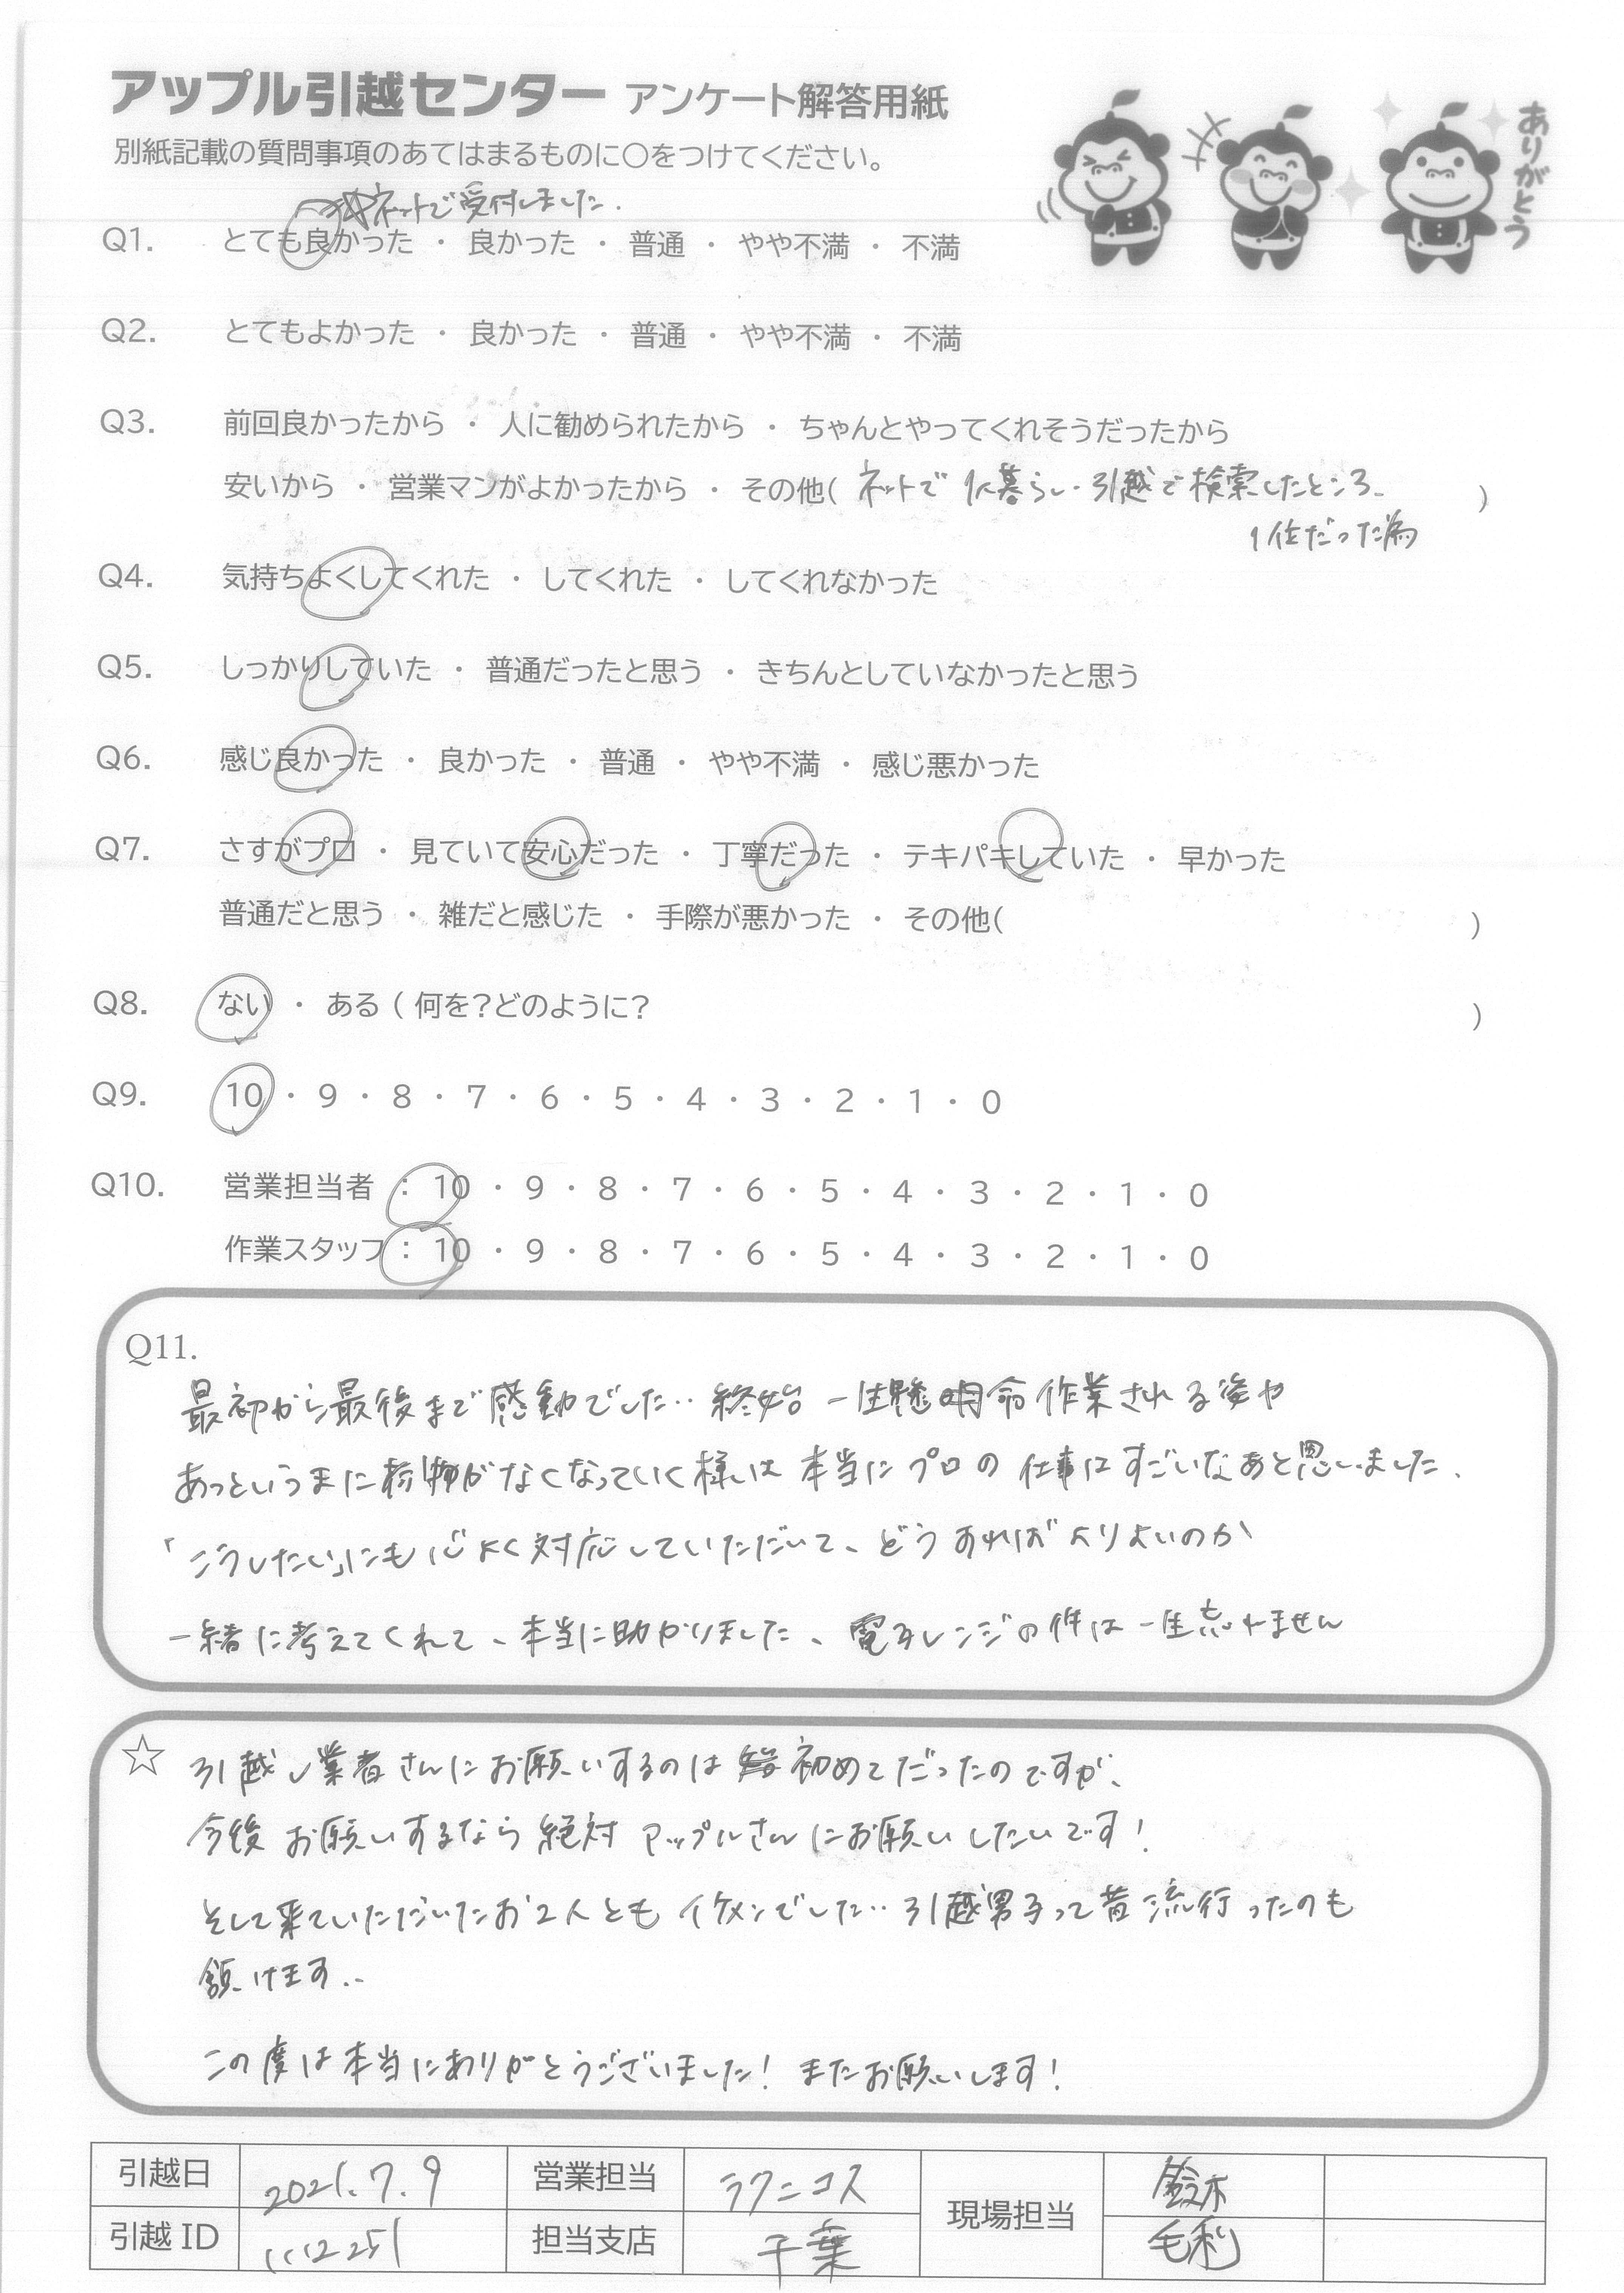 アップル引越センター アンケート解答用紙
別紙記載の質問事項のあてはまるものに○をつけてください。
ありがとう
ネットで受付しました.
Q1. とても良かった ・ 良かった ・ 普通 ・ やや不満 ・ 不満
Q2. とてもよかった ・ 良かった ・ 普通 ・ やや不満 ・ 不満
Q3. 前回良かったから ・ 人に勧められたから ・ ちゃんとやってくれそうだったから
安いから ・ 営業マンがよかったから ・ その他( ネットで 1人暮らし・引越で検索したところ、 )
1位だった為
Q4. 気持ちよくしてくれた ・ してくれた ・ してくれなかった
Q5. しっかりしていた ・ 普通だったと思う ・ きちんとしていなかったと思う
Q6. 感じ良かった ・ 良かった ・ 普通 ・ やや不満 ・ 感じ悪かった
Q7. さすがプロ ・ 見ていて安心だった ・ 丁寧だった ・ テキパキしていた ・ 早かった
普通だと思う ・ 雑だと感じた ・ 手際が悪かった ・ その他( )
Q8. ない ・ ある ( 何を?どのように? )
Q9. 10 ・ 9 ・ 8 ・ 7 ・ 6 ・ 5 ・ 4 ・ 3 ・ 2 ・ 1 ・ 0
Q10. 営業担当者 : 10 ・ 9 ・ 8 ・ 7 ・ 6 ・ 5 ・ 4 ・ 3 ・ 2 ・ 1 ・ 0
作業スタッフ : 10 ・ 9 ・ 8 ・ 7 ・ 6 ・ 5 ・ 4 ・ 3 ・ 2 ・ 1 ・ 0
Q11.
最初から最後まで感動でした… 終始 一生懸命作業される姿や
あっというまに荷物がなくなっていく様は 本当にプロの仕事はすごいなあと思いました、
「こうしたい」にも心よく対応していただいて、どうすればよりよいのか
一緒に考えてくれて、本当に助かりました、電子レンジの件は一生忘れません
☆ 引越し業者さんにお願いするのは 初めてだったのですが、
今後お願いするなら絶対アップルさんにお願いしたいです!
そして来ていただいたお2人ともイケメンでした… 引越男子って昔流行ったのも
頷けます…
この度は本当にありがとうございました! またお願いします!
引越日 2021.7.9 営業担当 ラクニコス 現場担当 鈴木
引越ID 1112251 担当支店 千葉 毛利